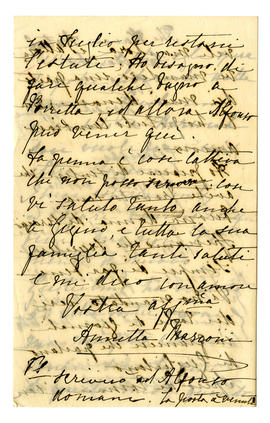 in luglio per restarvi
l'estate; Ho bisogno di
fare qualche bagno a
Porretta, ed allora Alfonso
può venir qui.
La penna è così cattiva
che non posso scrivere, così
vi saluto tanto, anche
a e tutta la sua
famiglia tanti saluti
e mi dico con amore
Vostra aff.ma
Annetta Marconi
PS
Scrivero ad Alfonso
domani. La posta a